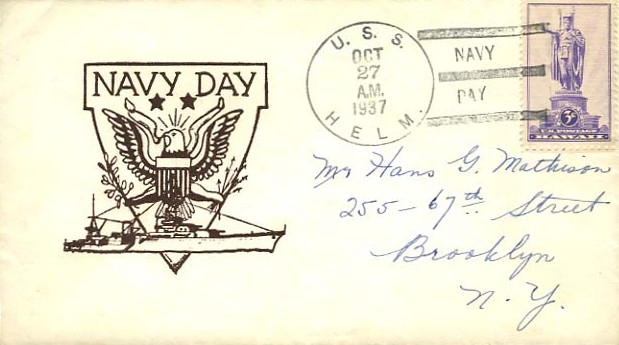 NAVY DAY
U. S. S.
OCT
27
A.M.
1937
HELM.
NAVY
DAY
3¢
U.S. POSTAGE
HAWAII
Mr Hans G. Mathison
255-67th Street
Brooklyn
N. Y.